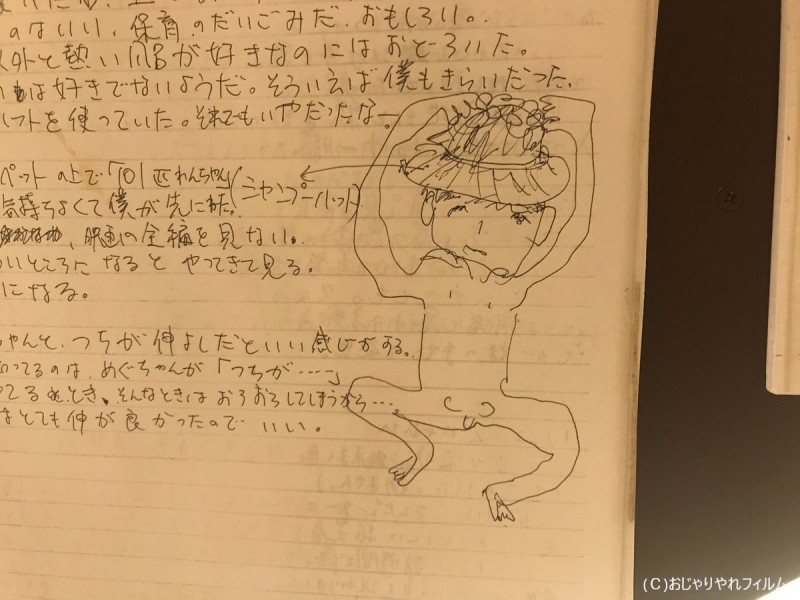 のはいい、保育のだいごみだ。おもしろい。
外と熱いMBが好きなのにはおどろいた。
は好きでないようだ。そういえば僕もきらいだった。
ハットを使っていた。それでもいやだったな。
ペットの上で「101匹わんちゃん
(シャンプーハット)
気持ちよくて僕が先にねた。
、映画の全編を見ない。
いところになると やってきて見る。
になる。
ちゃんと、つちが仲よしだといい感じがする。
ってるのは、めぐちゃんが「つちが……」
てるとき、そんなときは おろおろしてしまうから…
はとても仲が良かったので いい。
(C)おじゃりやれフィルム